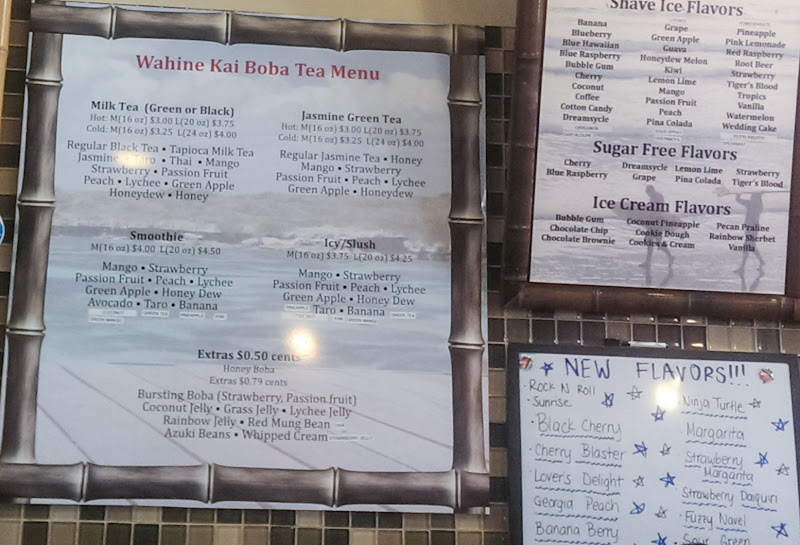 Wahine Kai Boba Tea Menu
Milk Tea (Green or Black)
Hot: M(16 oz) $3.00 L(20 oz) $3.75
Cold: M(16 oz) $3.25 L(24 oz) $4.00
Regular Black Tea • Tapioca Milk Tea
Jasmine • Taro • Thai • Mango
Strawberry • Passion Fruit
Peach • Lychee • Green Apple
Honeydew • Honey
Jasmine Green Tea
Hot: M(16 oz) $3.00 L(20 oz) $3.75
Cold: M(16 oz) $3.25 L(24 oz) $4.00
Regular Jasmine Tea • Honey
Mango • Strawberry
Passion Fruit • Peach • Lychee
Green Apple • Honeydew
Smoothie
M(16 oz) $4.00 L(20 oz) $4.50
Mango • Strawberry
Passion Fruit • Peach • Lychee
Green Apple • Honey Dew
Avocado • Taro • Banana
COCONUT GREEN TEA PINEAPPLE KIWI
GREEN MANGO
Icy/Slush
M(16 oz) $3.75 L(20 oz) $4.25
Mango • Strawberry
Passion Fruit • Peach • Lychee
Green Apple • Honey Dew
PINEAPPLE Taro • Banana
KIWI GREEN MANGO GREEN TEA
Extras $0.50 cents
Honey Boba
Extras $0.79 cents
Bursting Boba (Strawberry, Passion fruit)
Coconut Jelly • Grass Jelly • Lychee Jelly
Rainbow Jelly • Red Mung Bean
Azuki Beans • Whipped Cream STRAWBERRY JELLY
Shave Ice Flavors
Banana
Blueberry
Blue Hawaiian
Blue Raspberry
Bubble Gum
Cherry
Coconut
Coffee
Cotton Candy
Dreamsycle
Grape
Green Apple
Guava
Honeydew Melon
Kiwi
Lemon Lime
Mango
Passion Fruit
Peach
Pina Colada
Pineapple
Pink Lemonade
Red Raspberry
Root Beer
Strawberry
Tiger's Blood
Tropics
Vanilla
Watermelon
Wedding Cake
Sugar Free Flavors
Cherry
Blue Raspberry
Dreamsycle
Grape
Lemon Lime
Pina Colada
Strawberry
Tiger's Blood
Ice Cream Flavors
Bubble Gum
Chocolate Chip
Chocolate Brownie
Coconut Pineapple
Cookie Dough
Cookies & Cream
Pecan Praline
Rainbow Sherbet
Vanilla
NEW FLAVORS!!!
Rock N Roll
• Sunrise
• Black Cherry
• Cherry Blaster
• Lover's Delight
Georgia Peach
Banana Berry
Ninja Turtle
Margarita
Strawberry
Margarita
Strawberry Daiquiri
Fuzzy Navel
Sour Green